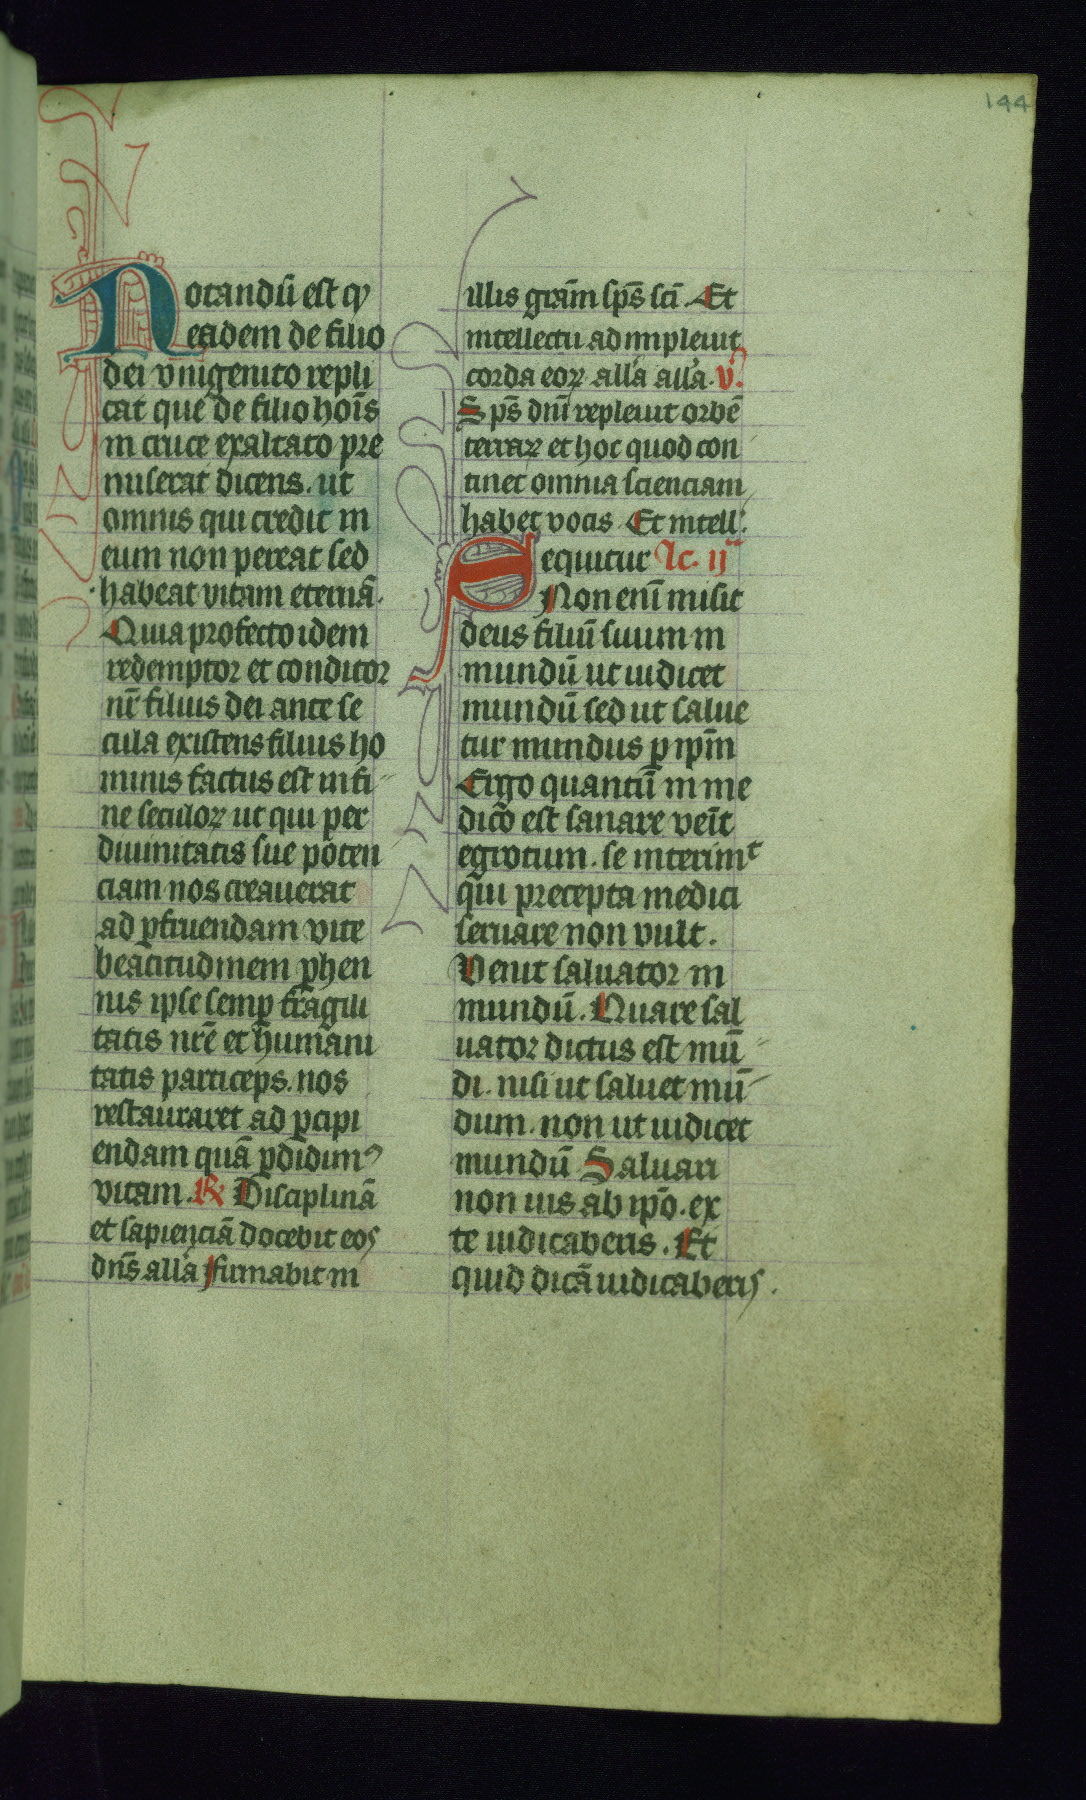 144
Notandū est qͥ
eadem de filio
dei vnigenito repli
cat que de filio hoīs
in cruce exaltato pre
miserat dicens. ut
omnis qui credit in
eum non pereat sed
habeat vitam eternā.
Quia profecto idem
redemptor et conditor
nr̄ filius dei ante se
cula existens filius ho
minis factus est in fi
ne seculoꝝ ut qui per
diuinitatis sue poten
ciam nos creauerat
ad ꝑfruendam vite
beatitudinem ꝑhen
nis ipse semꝑ fragili
tatis nr̄e et humani
tatis particeps. nos
restauraret ad ꝑcipi
endam quā ꝑdidimꝰ
vitam. ℟ Disciplinā
et sapienciā docebit eos
dn̄s alla firmabit in
illis grām sp̄s sc̄i. Et
intellectu adimpleuit
corda eoꝝ alla alla. v̓.
Sp̄s dn̄i repleuit orbē
terraꝝ et hoc quod con
tinet omnia scienciam
habet vocis Et intell̓.
Sequitur lc. ij
Non enī misit
deus filiū suum in
mundū ut iudicet
mundū sed ut salue
tur mundus ꝑ ipm̄
Ergo quantū in me
dico est sanare venit
egrotum. se interimᵗ
qui precepta medici
seruare non vult.
Venit saluator in
mundū. Quare sal
uator dictus est mū
di. nisi ut saluet mū
dum. non ut iudicet
mundū Saluari
non uis ab ipo. ex
te iudicaberis. Et
quid dicā iudicaberis.